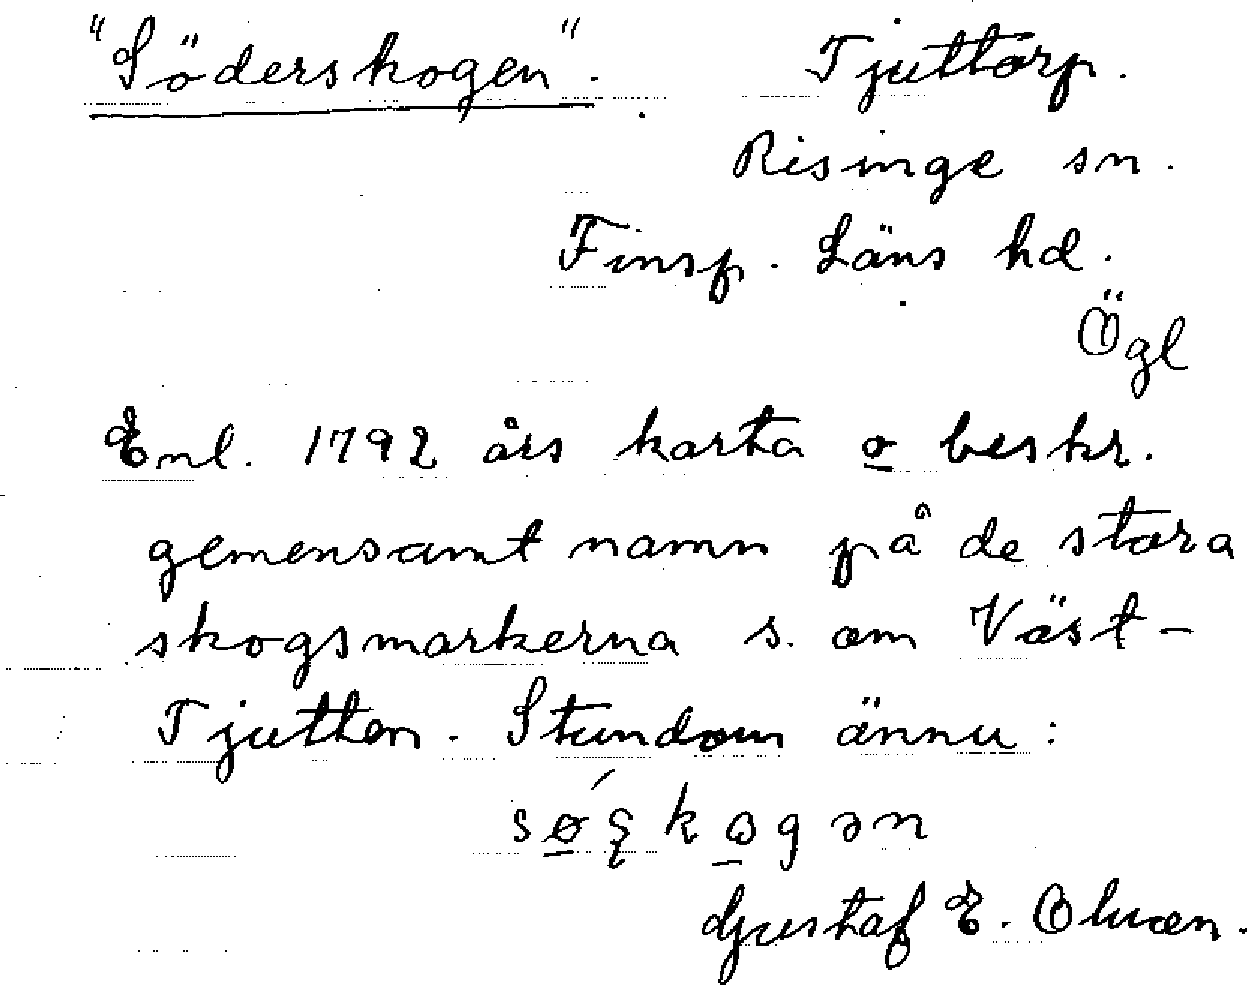 "Söderskogen". Tjuttorp.
Risinge sn.
Finsp. Läns hd.
Ögl
Enl. 1792 års karta o beskr.
gemensamt namn på de stora
skogsmarkerna s. om Väst-
Tjutten. Stundom ännu:
Gustaf E.